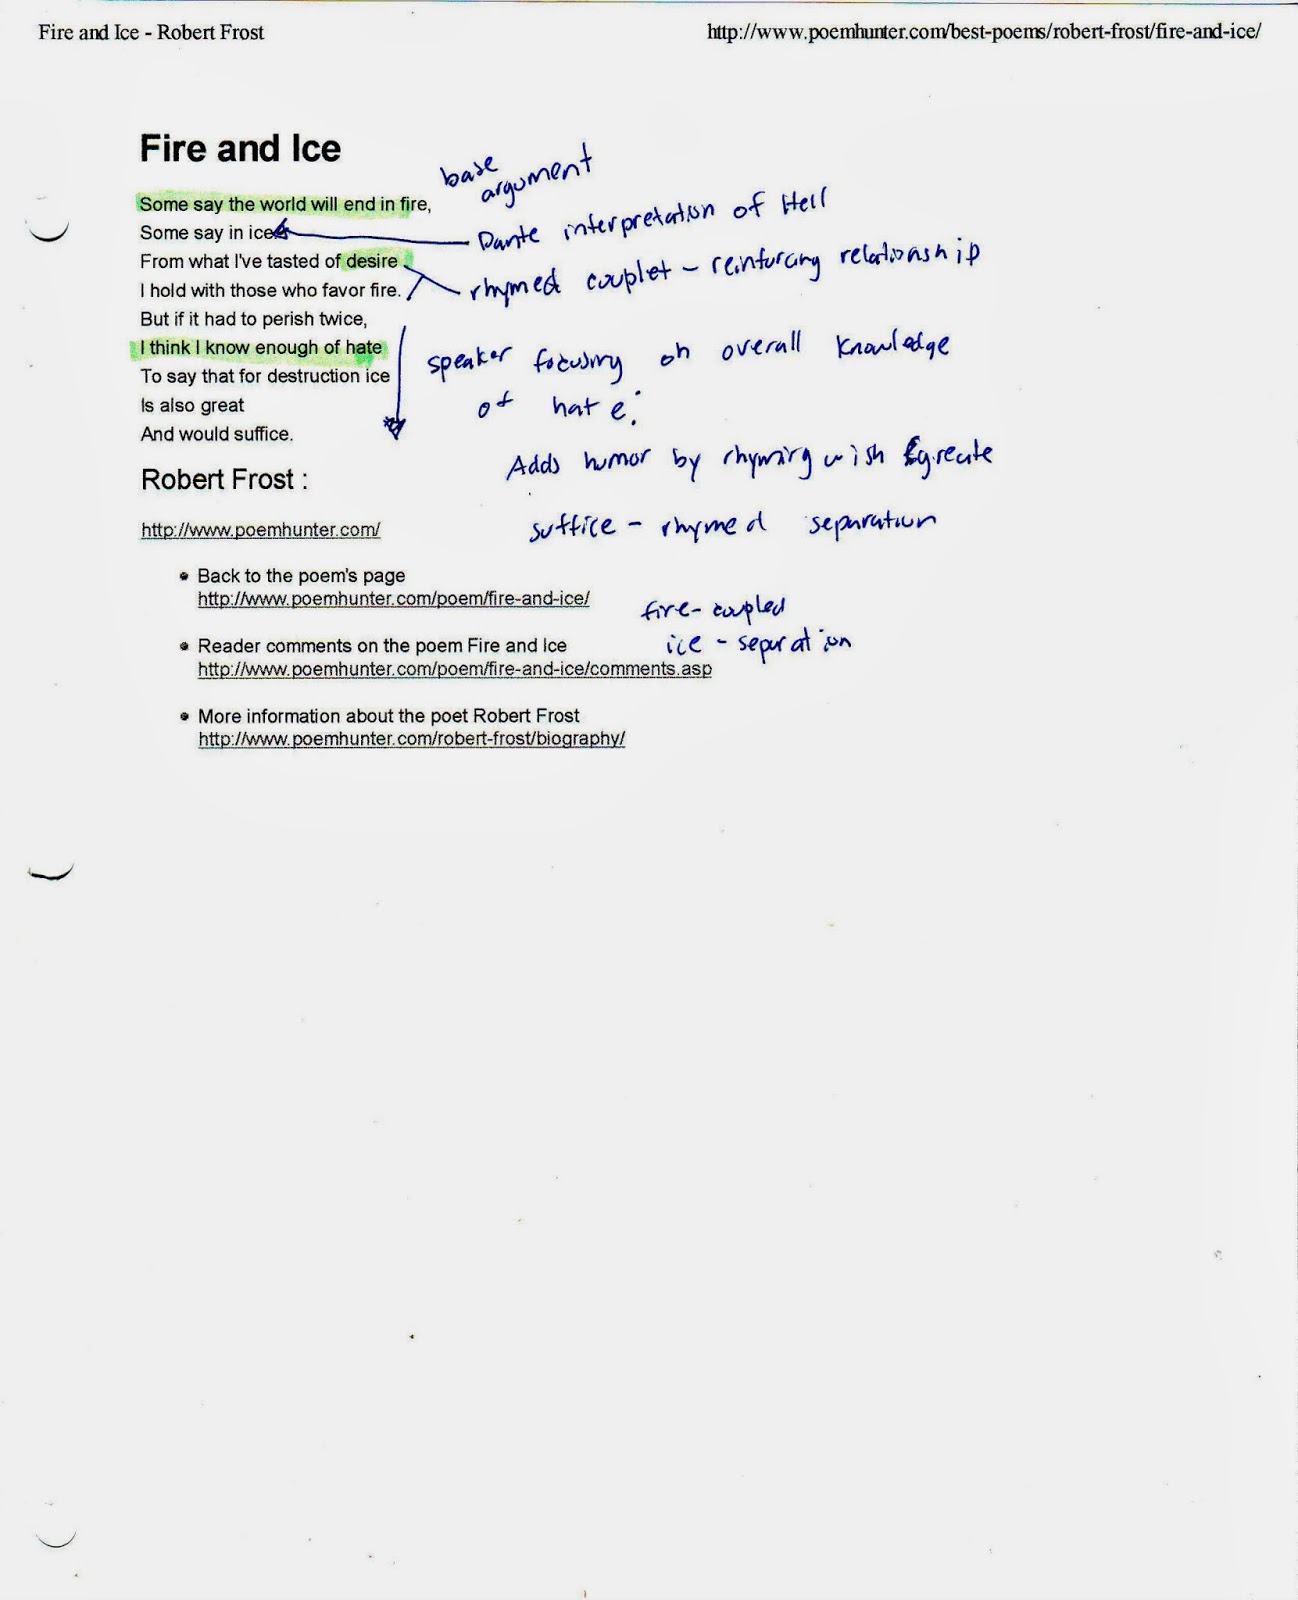 Fire and Ice - Robert Frost
http://www.poemhunter.com/best-poems/robert-frost/fire-and-ice/
Fire and Ice
base
argument
Some say the world will end in fire,
Some say in ice
Dante interpretation of Hell
From what I've tasted of desire
I hold with those who favor fire.
rhymed couplet - reinforcing relationship
But if it had to perish twice,
I think I know enough of hate
To say that for destruction ice
Is also great
And would suffice.
speaker focusing on overall knowledge
of hate:
Adds humor by rhyming wish
suffice - rhymed separation
Robert Frost :
http://www.poemhunter.com/
Back to the poem's page
http://www.poemhunter.com/poem/fire-and-ice/
fire - coupled
ice - separation
Reader comments on the poem Fire and Ice
http://www.poemhunter.com/poem/fire-and-ice/comments.asp
More information about the poet Robert Frost
http://www.poemhunter.com/robert-frost/biography/